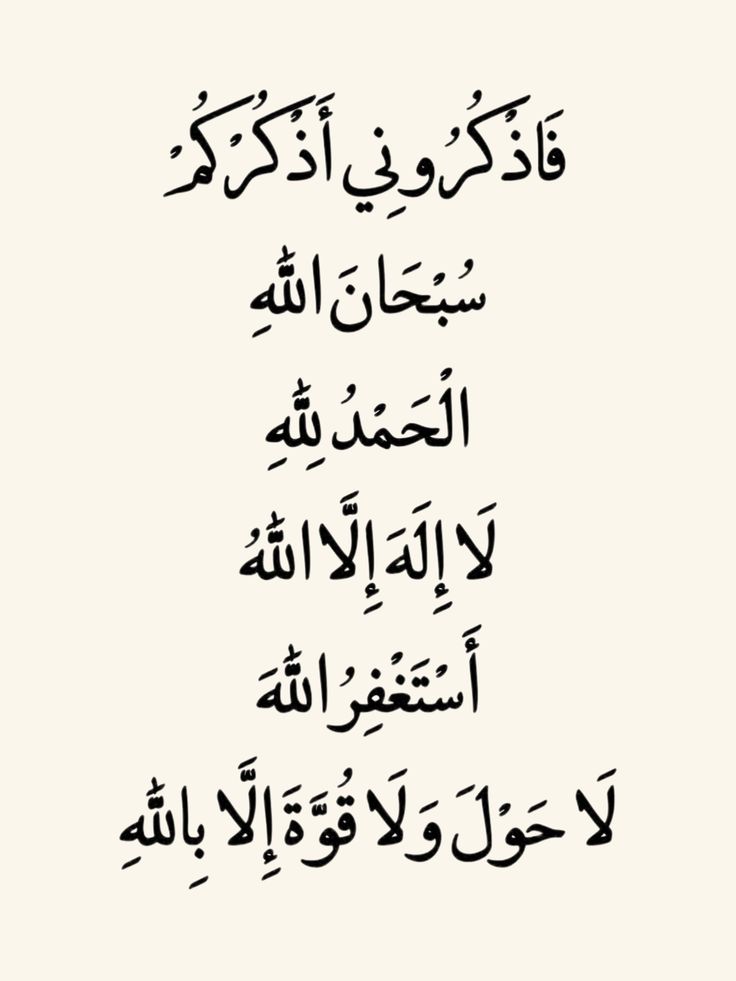 فَاذْكُرُونِي أَذْكُرْكُمْ
سُبْحَانَ اللّٰهِ
الْحَمْدُ لِلّٰهِ
لَا إِلَهَ إِلَّا اللّٰهُ
أَسْتَغْفِرُ اللّٰهَ
لَا حَوْلَ وَلَا قُوَّةَ إِلَّا بِاللّٰهِ